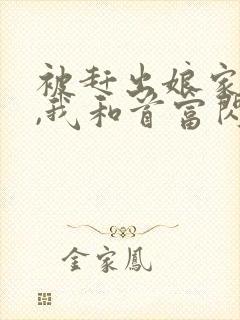 被赶出娘家
,我和首富闪
金家凤